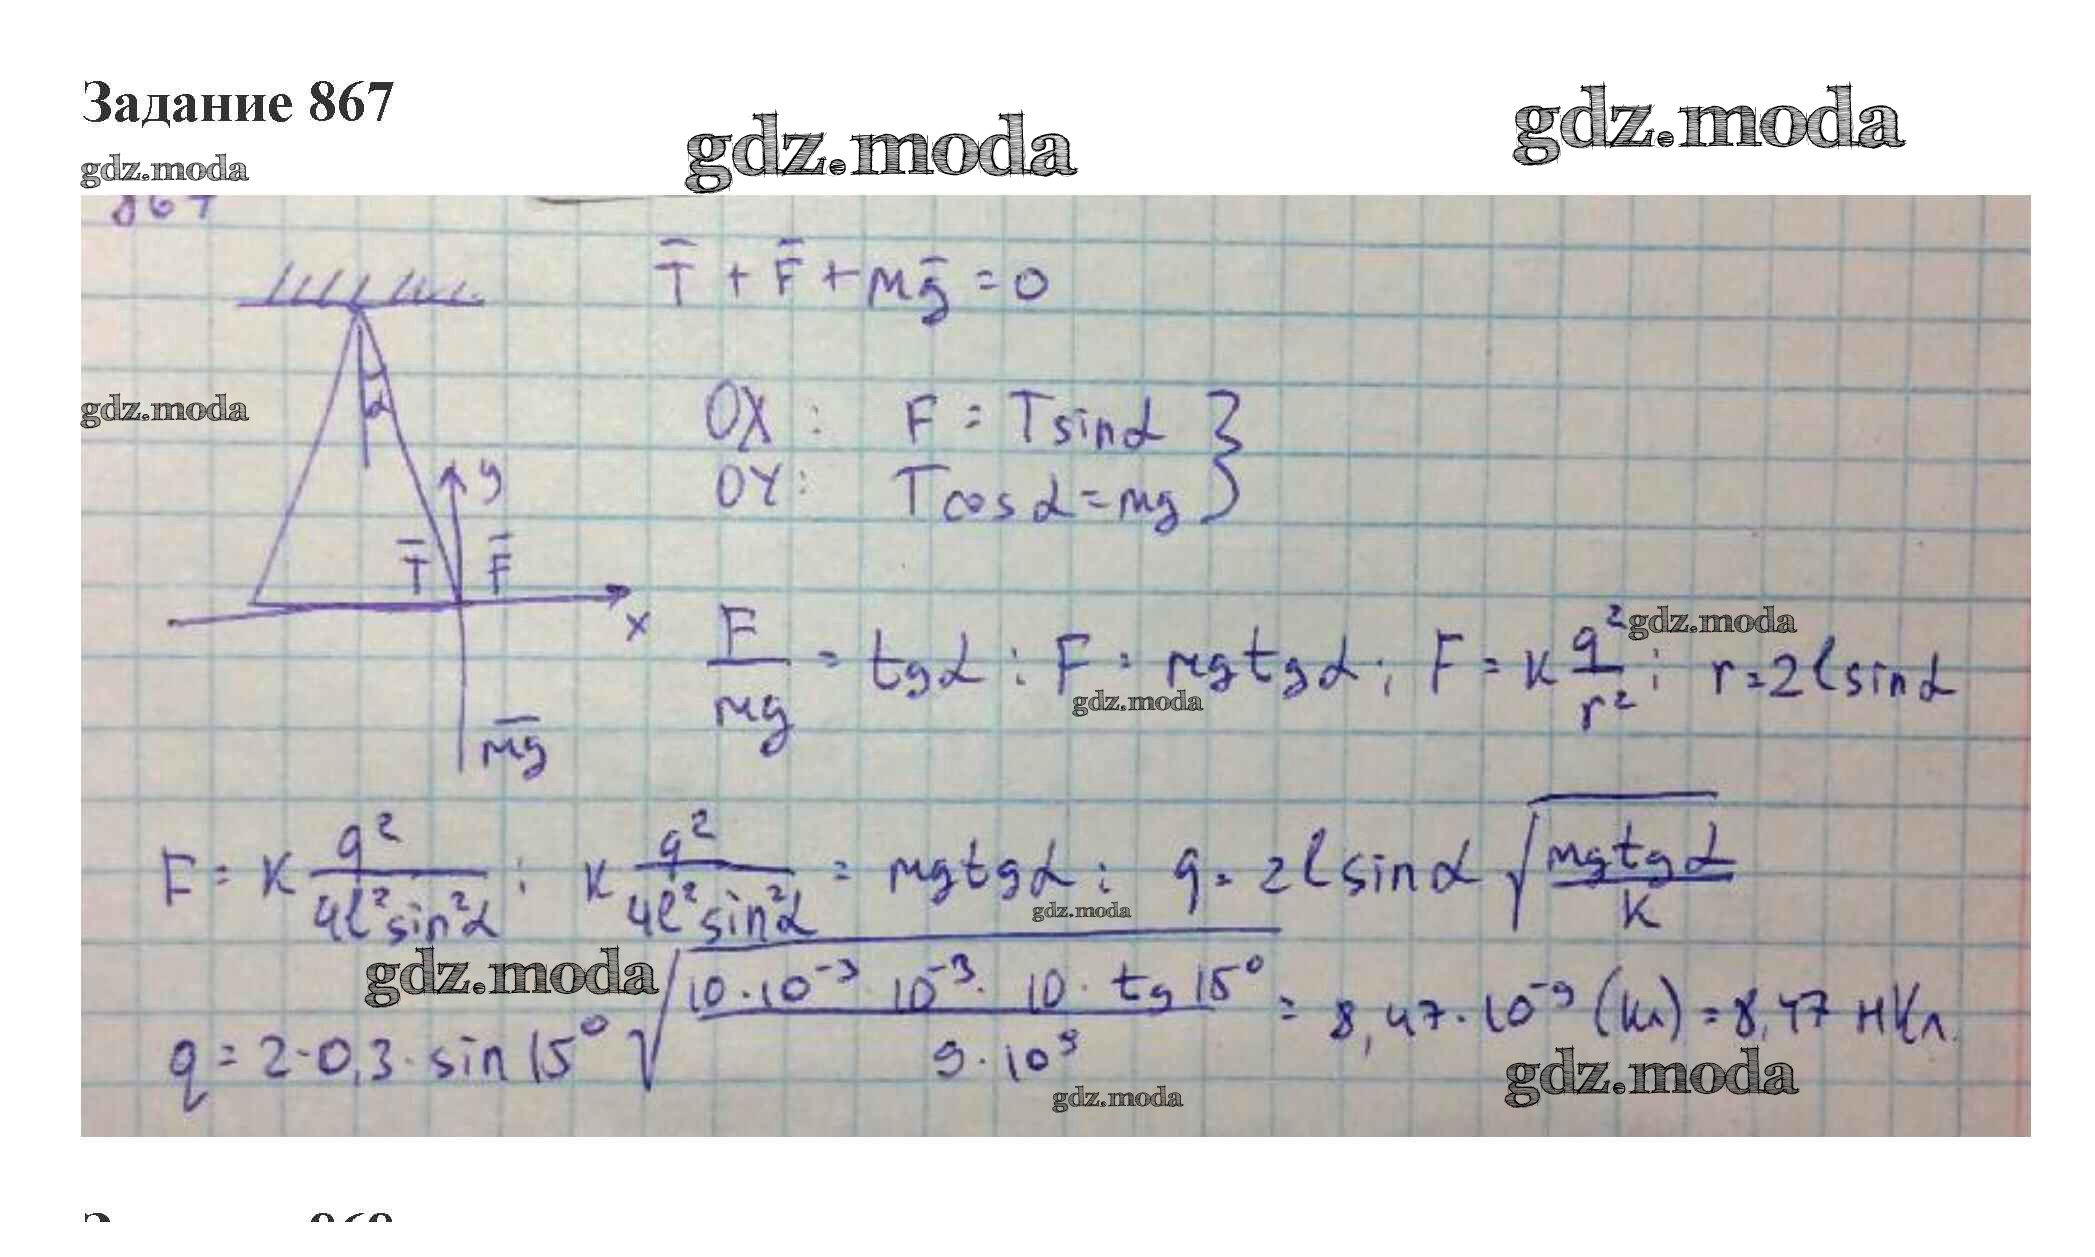 Задание 867
gdz.moda
gdz.moda
gdz.moda
867
T̅ + F̅ + mg̅ = 0
α
gdz.moda
OX : F = T sin α }
y
OY : T cos α = mg }
T̅ F̅
x
F/mg = tg α ; F = mg tg α ; F = k q²/r² ; r = 2l sin α
gdz.moda
gdz.moda
mg̅
F = k q²/4l² sin² α ; k q²/4l² sin² α = mg tg α ; q = 2l sin α √(mg tg α/k)
gdz.moda
gdz.moda
q = 2 · 0,3 · sin 15° √(10 · 10⁻³ · 10⁻³ · 10 · tg 15°/9 · 10⁹) = 8,47 · 10⁻⁹ (Кл) = 8,47 нКл.
gdz.moda
gdz.moda